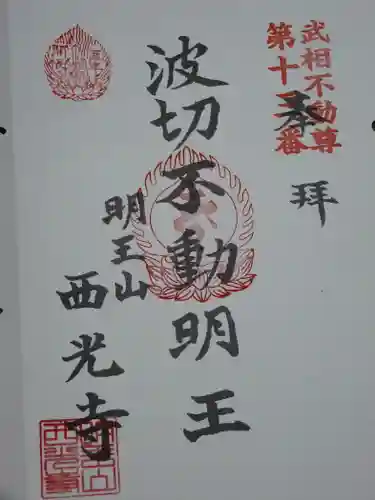 武相不動尊
第十二番
奉
拝
波切不動明王
明王山
西光寺